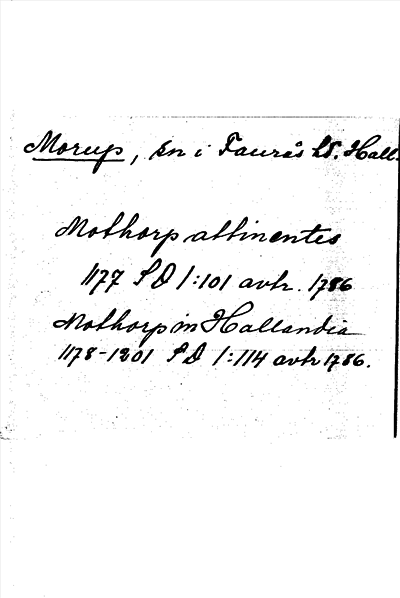 Morup, sn i Faurås hd. Hall.
Mothorp attinentes
1177 SD 1:101 avskr. 1786
Mothorp in Hallandia
1178-1201 SD 1:114 avskr 1786.